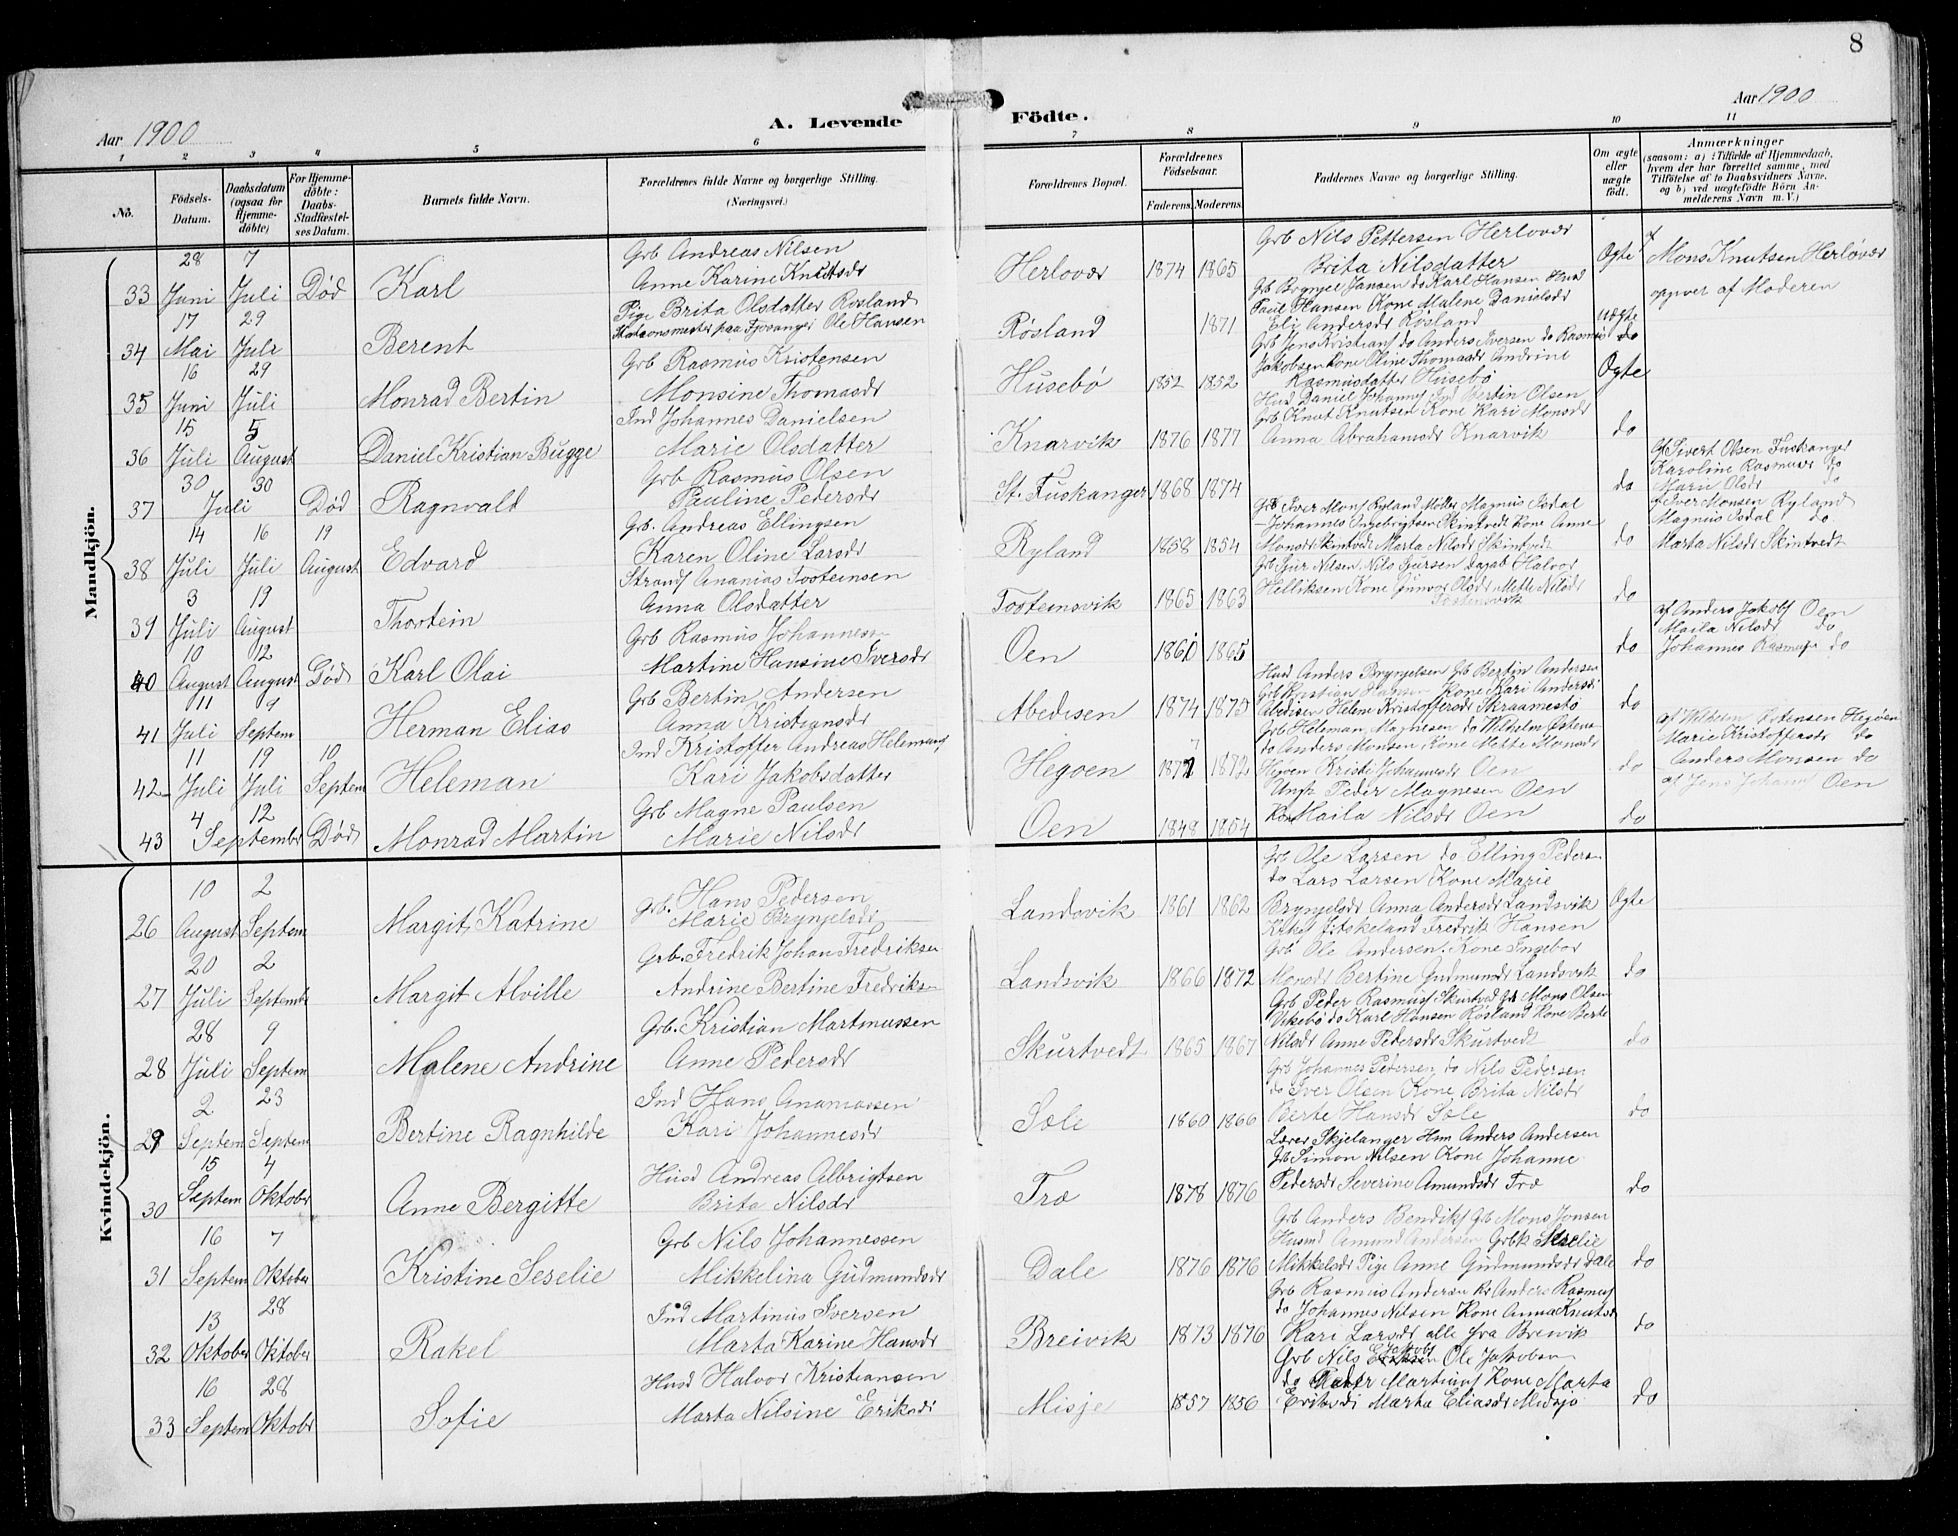 8
Aar 1900
A. Levende Födte.
Aar 1900
1 2 3 4 5 6 7 8 9 10 11
No.
Födsels-Datum.
Daabsdatum (ogsaa for Hjemme-döbte)
For Hjemme-döbte: Daabs-Stadfæstel-ses Datum.
Barnets fulde Navn.
Forældrenes fulde Navne og borgerlige Stilling. (Næringsvei.)
Forældrenes Bopæl.
Forældrenes Födselsaar.
Faderens. Moderens.
Faddernes Navne og borgerlige Stilling.
Om ægte eller uægte födt.
Anmærkninger
(saasom: a) i Tilfælde af Hjemmedaab, hvem der har forrettet samme, med Tilföielse af to Daabsvidners Navne, og b) ved uægtefödte Börn An-melderens Navn m. V.)
Mandkjön.
33 28 Juni 7 Juli Död Karl
Grb Andreas Nilsen
Anne Karine Knutsdr
Herlovær 1874 1865
Grb Nils Pettersen Herlovær
Brita Nilsdatter
Ogte
Mons Knutsen Herlövær
34 17 Mai 29 Juli Berent
Pige Brita Olsdatter Rosland
Stationsmester paa Fjosanger Ole Hansen
Rösland 1871
Grb Brynjel Jansen do Karl Hansen Husd
Paul Hansen Kone Malene Danielsdr
Eli Andersdr Rösland
uægte
opgver af Moderen
35 16 Juni 29 Juli Monrad Bertin
Grb Rasmus Kristensen
Monsine Thomasdr
Husebö 1852 1852
Grb Jens Kristians do Anders Iversen do Rasmus do
Jakobsen Kone Oline Thomasdr Andrine
Rasmusdatter Husebö
Ogte
36 15 Juli 5 August Daniel Kristian Bugge
Ind Johannes Danielsen
Marie Olsdatter
Knarvik 1876 1877
Husd Daniel Johannes Ind Bertin Olsen
Grb Knut Knutsen Kone Kari Monsdr
Anna Abrahamsdr Knarvik
do
37 30 30 Juli Död Ragnvald
Grb Rasmus Olsen
Pauline Pedersdr
St. Fuskanger 1868 1874
do
af Sivert Olsen Fuskanger
Karoline Rasmusdr do
Marie Olsdr do
38 14 Juli 16 Juli 19 August Edvard
Grb. Andreas Ellingsen
Karen Oline Larsdr
Ryland 1858 1854
Grb Iver Mons Ryland Möller Magnus Isdal
Johannes Ingebrigtsen Skintvedt Kone Anne
Monsdr Skintvedt Marta Nilsdr Skintvedt
do
af Iver Monsen Ryland
Magnus Isdal do
Marta Nilsdr Skintvedt
39 3 Juli 19 August Thortein
Strands Ananias Tosteinsen
Anna Olsdatter
Tosteinsvik 1865 1863
Grb Gur Nilsen, Nils Gursen Halvor
Helliksen Kone Gunvor Olsdr Mette Nilsdr
Tosteinsvik
do
40 10 August 12 August Död Karl Olai
Grb Rasmus Johannesen
Martine Hansine Iversdr
Oen 1861 1865
do
af Anders Jakobs Oen
Maila Nilsdr do
Johannes Rasmuss do
41 11 Juli 9 Septem Herman Elias
Grb Bertin Andersen
Anna Kristiansdr
Abedisen 1874 1875
Husd Anders Brynjelsen Grb Bertin Andersen
Grb Kristian Hansen Kone Kari Andersdr
Abedisen Helene Kristoffersdr Skraamestö
do
42 11 Juli 19 Juli 10 Septem Heleman
Ind Kristoffer Andreas Helemans
Kari Jakobsdatter
Hegoen 1877 1872
Grb Heleman Magnesen do Wilhelm Ostens
do Anders Monsen Kone Mette Monsdr
Hegoen Kristi Johannesdr Oen
do
af Wilhelm Ostensen Hegöen
Marie Kristoffersdr do
Anders Monsen do
43 4 12 September Död Monrad Martin
Grb Magne Paulsen
Marie Nilsdr
Oen 1848 1854
Ungk Peder Magnesen Oen
Kone Maila Nilsdr Oen
do
af Jens Johans Oen
Kvindekjön.
26 10 August 2 Septem Margit Katrine
Grb. Hans Pedersen
Marie Brynjelsdr
Landsvik 1861 1862
Grb Ole Larsen do Elling Peders
do Lars Larsen Kone Marie
Brynjelsdr Anna Andersdr Landsvik
Ogte
27 20 Juli 2 Septembr Margit Alvilde
Grb. Fredrik Johan Fredriksen
Andrine Bertine Fredriksen
Landsvik 1866 1872
Eskeland Fredrik Hansen
Grb Ole Andersen. Kone Ingebor
Monsdr Bertine Gudmunsdr Landsvik
do
28 28 Juli 9 Septem Malene Andrine
Grb. Kristian Martinussen
Anne Pedersdr
Skurtvedt 1865 1867
Grb Peder Rasmuss Skurtved Gb Mons Olsen
Vikebö do Karl Hansen Rösland Kone Berte
Nilsdr Anne Pedersdr Skurtvedt
do
29 2 Septem 23 Septem Bertine Ragnhilde
Ind Hans Anamassen
Kari Johannesdr
Sæle 1860 1866
Grb Johannes Pedersen do Nils Pedersen
do Iver Olsen Kone Brita Nilsdr
Berte Hansdr Sæle
do
30 15 Septem 4 Oktober Anne Bergitte
Husd Andreas Albrigtsen
Brita Nilsdr
Træ 1878 1876
Lærer Skjelanger Hm Anders Andersen
Grb Simon Nilsen Kone Johanne
Pedersdr Severine Amundsdr Træ
do
31 16 Septem 7 Oktober Kristine Seselie
Grb Nils Johannessen
Mikkelina Gudmundsdr
Dale 1876 1876
Grb Anders Bendiks Grb Mons Jonsen
Husmd Amund Andersen Grbk Seselie
Mikkelsdr Pige Anne Gudmundsdr Dale
do
32 13 Oktober 28 Oktober Rakel
Ind Martinus Iversen
Marta Karine Hansdr
Breivik 1873 1876
Grb Rasmus Andersen do Anders Rasmus
do Johannes Nilsen Kone Anna Knutsdr
Kari Larsdr alle fra Breivik
do
33 16 Septem 28 Oktobr Sofie
Husd Halvor Kristiansen
Marta Nilsine Eriksdr
Misje 1857 1856
Grb Nils Jakobs Ole Jakobsen
do Peder Martinus Kone Marta
Eriksdr Marta Eliasdr Midsjö
do